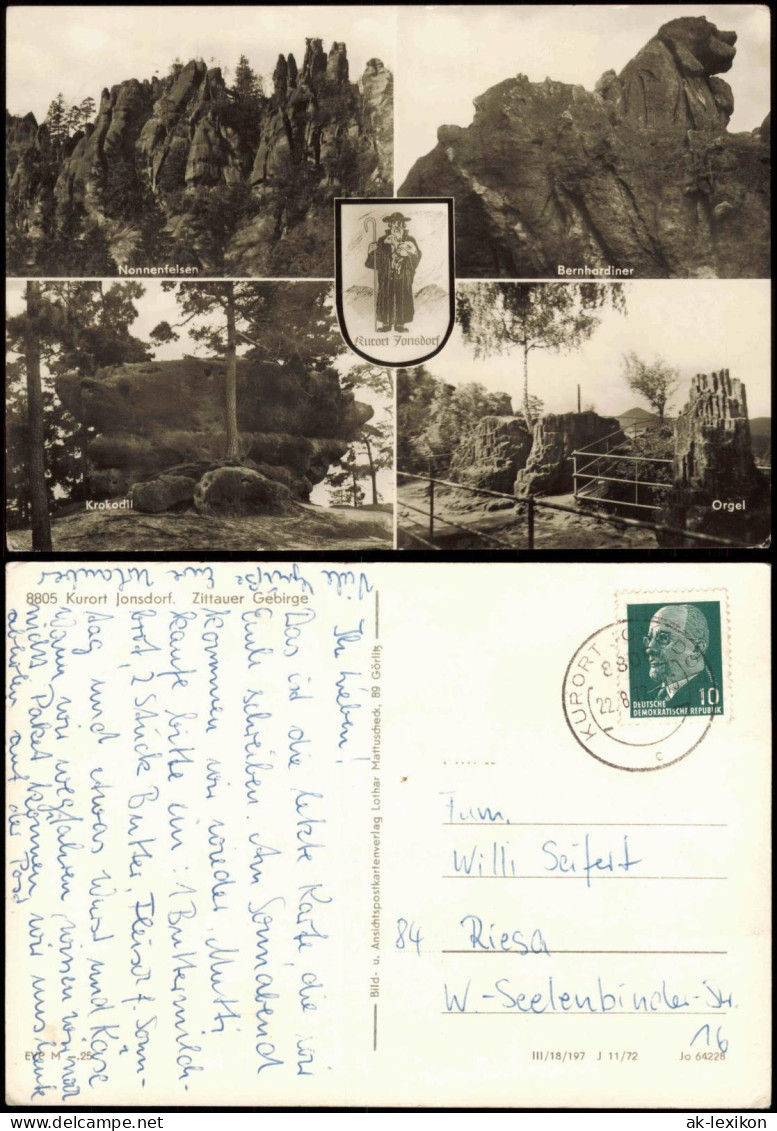 Nonnenfelsen
Bernhardiner
Kurort Jonsdorf
Krokodil
Orgel
8805 Kurort Jonsdorf. Zittauer Gebirge
Ihr Lieben!
Das ist die letzte Karte die wir
Euch schreiben. Am Sonnabend
kommen wir wieder. Mutti
kaufe bitte ein: 1 Buttermilch-
brot, 2 Stück Butter, Fleisch f. Sonn-
tag und etwas Wurst und Käse
Wann wir wegfahren wissen wir
nicht. Paket können wir uns heute
abholen auf der Post
Viele Grüße Eure Urlauber
Bild- u. Ansichtspostkartenverlag Lothar Mattuscheck, 89 Görlitz
KURORT JONSDORF
8805
22.8.
c
10
DEUTSCHE
DEMOKRATISCHE REPUBLIK
Fam.
Willi Seifert
84 Riesa
W.-Seelenbinder-Str.
16
EVP M -.25
III/18/197 J 11/72 Jo 64228
ak-lexikon.com